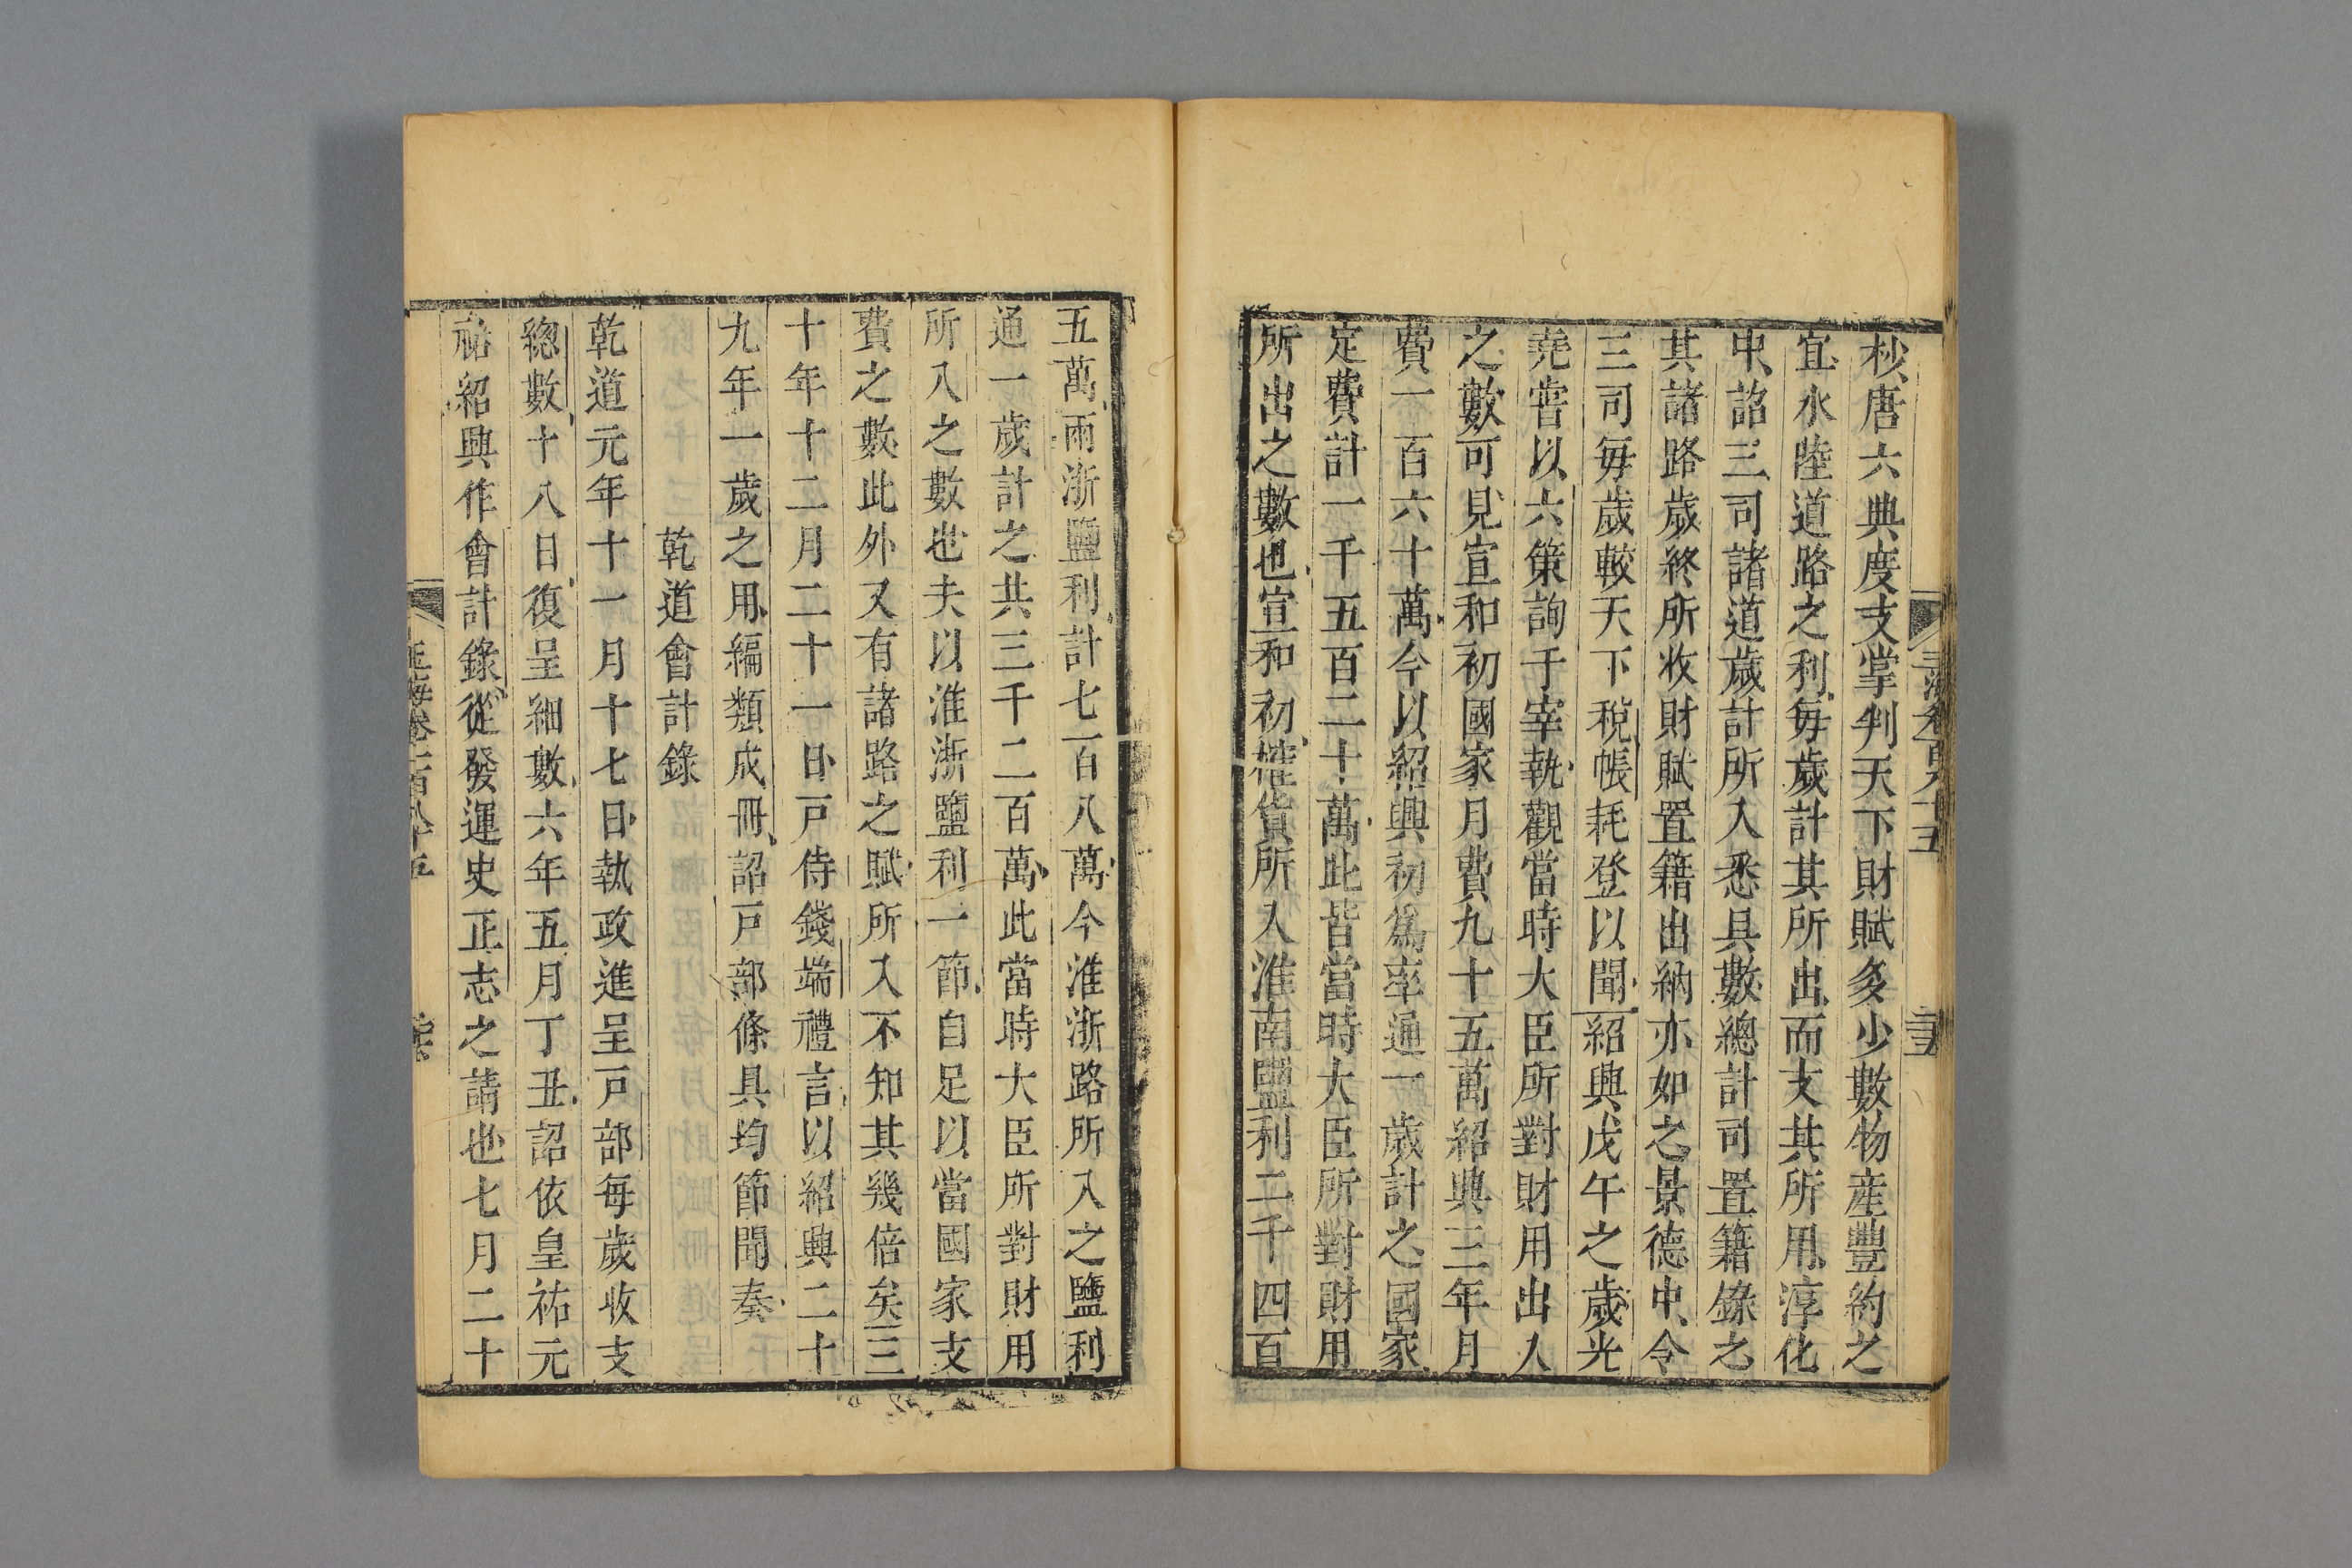 杪唐六典度支掌判天下財賦多少數物産豐約之
宜水陸道路之利每歲計其所出而支其所用淳化
中詔三司諸道歲計所入悉具數總計司置籍錄之
其諸路歲終所收財賦置籍出納亦如之景德中令
三司每歲較天下稅帳耗登以聞紹興戊午之歲光
堯嘗以六策詢于宰執觀當時大臣所對財用出入
之數可見宣和初國家月費九十五萬紹興三年月
費一百六十萬今以紹興初爲率通一歲計之國家
定費計一千五百二十萬此皆當時大臣所對財用
所出之數也宣和初榷貨所入淮南鹽利二千四百
五萬兩浙鹽利計七百八萬今淮浙路所入之鹽利
通一歲計之共三千二百萬此當時大臣所對財用
所入之數也夫以淮浙鹽利一節自足以當國家支
費之數此外又有諸路之賦所入不知其幾倍矣三
十年十二月二十一日戸侍錢端禮言以紹興二十
九年一歲之用編類成冊詔戸部條具均節聞奏
乾道會計錄
乾道元年十一月十七日執政進呈戸部每歲收支
總數十八日復呈細數六年五月丁丑詔依皇祐元
祐紹興作會計錄從發運史正志之請也七月二十
玉海卷一百八十五